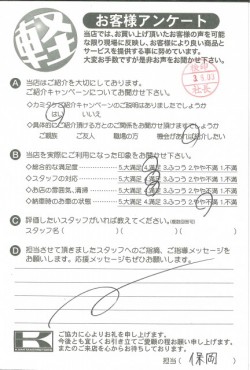 軽
お客様アンケート
当店では、お買い上げ頂いたお客様の声を可能
な限り現場に反映し、お客様により良い商品と
サービスを提供する事に努めています。
大変お手数ですが是非お声をお聞かせ下さい。
A 当店はご紹介を大切にしております。
ご紹介キャンペーンについてお聞かせ下さい。
はい いいえ
○具体的にご紹介頂ける方とのご関係をお聞かせ頂けますでしょうか
ご親族 ご友人 職場の方 機会があれば紹介したい
B 当店を実際にご利用になった印象をお聞かせ下さい。
○総合的な満足度 5.大満足 4.満足 3.ふつう 2.やや不満 1.不満
○スタッフの対応 5.大満足 4.満足 3.ふつう 2.やや不満 1.不満
○お店の雰囲気、清掃 5.大満足 4.満足 3.ふつう 2.やや不満 1.不満
○納車時のお車の状態 5.大満足 4.満足 3.ふつう 2.やや不満 1.不満
C 評価したいスタッフがいれば教えてください。
スタッフ名（ ）（ ）
D 担当させて頂きましたスタッフへのご指摘、ご指導メッセージを
お願いします。応援メッセージもぜひお願いします。
K
ご協力に心よりお礼を申し上げます。
今後とも宜しくお引き立てご愛顧の程お願い申し上げます。
またのご来店を心からお待ちしております。
担当（ 保岡 ）